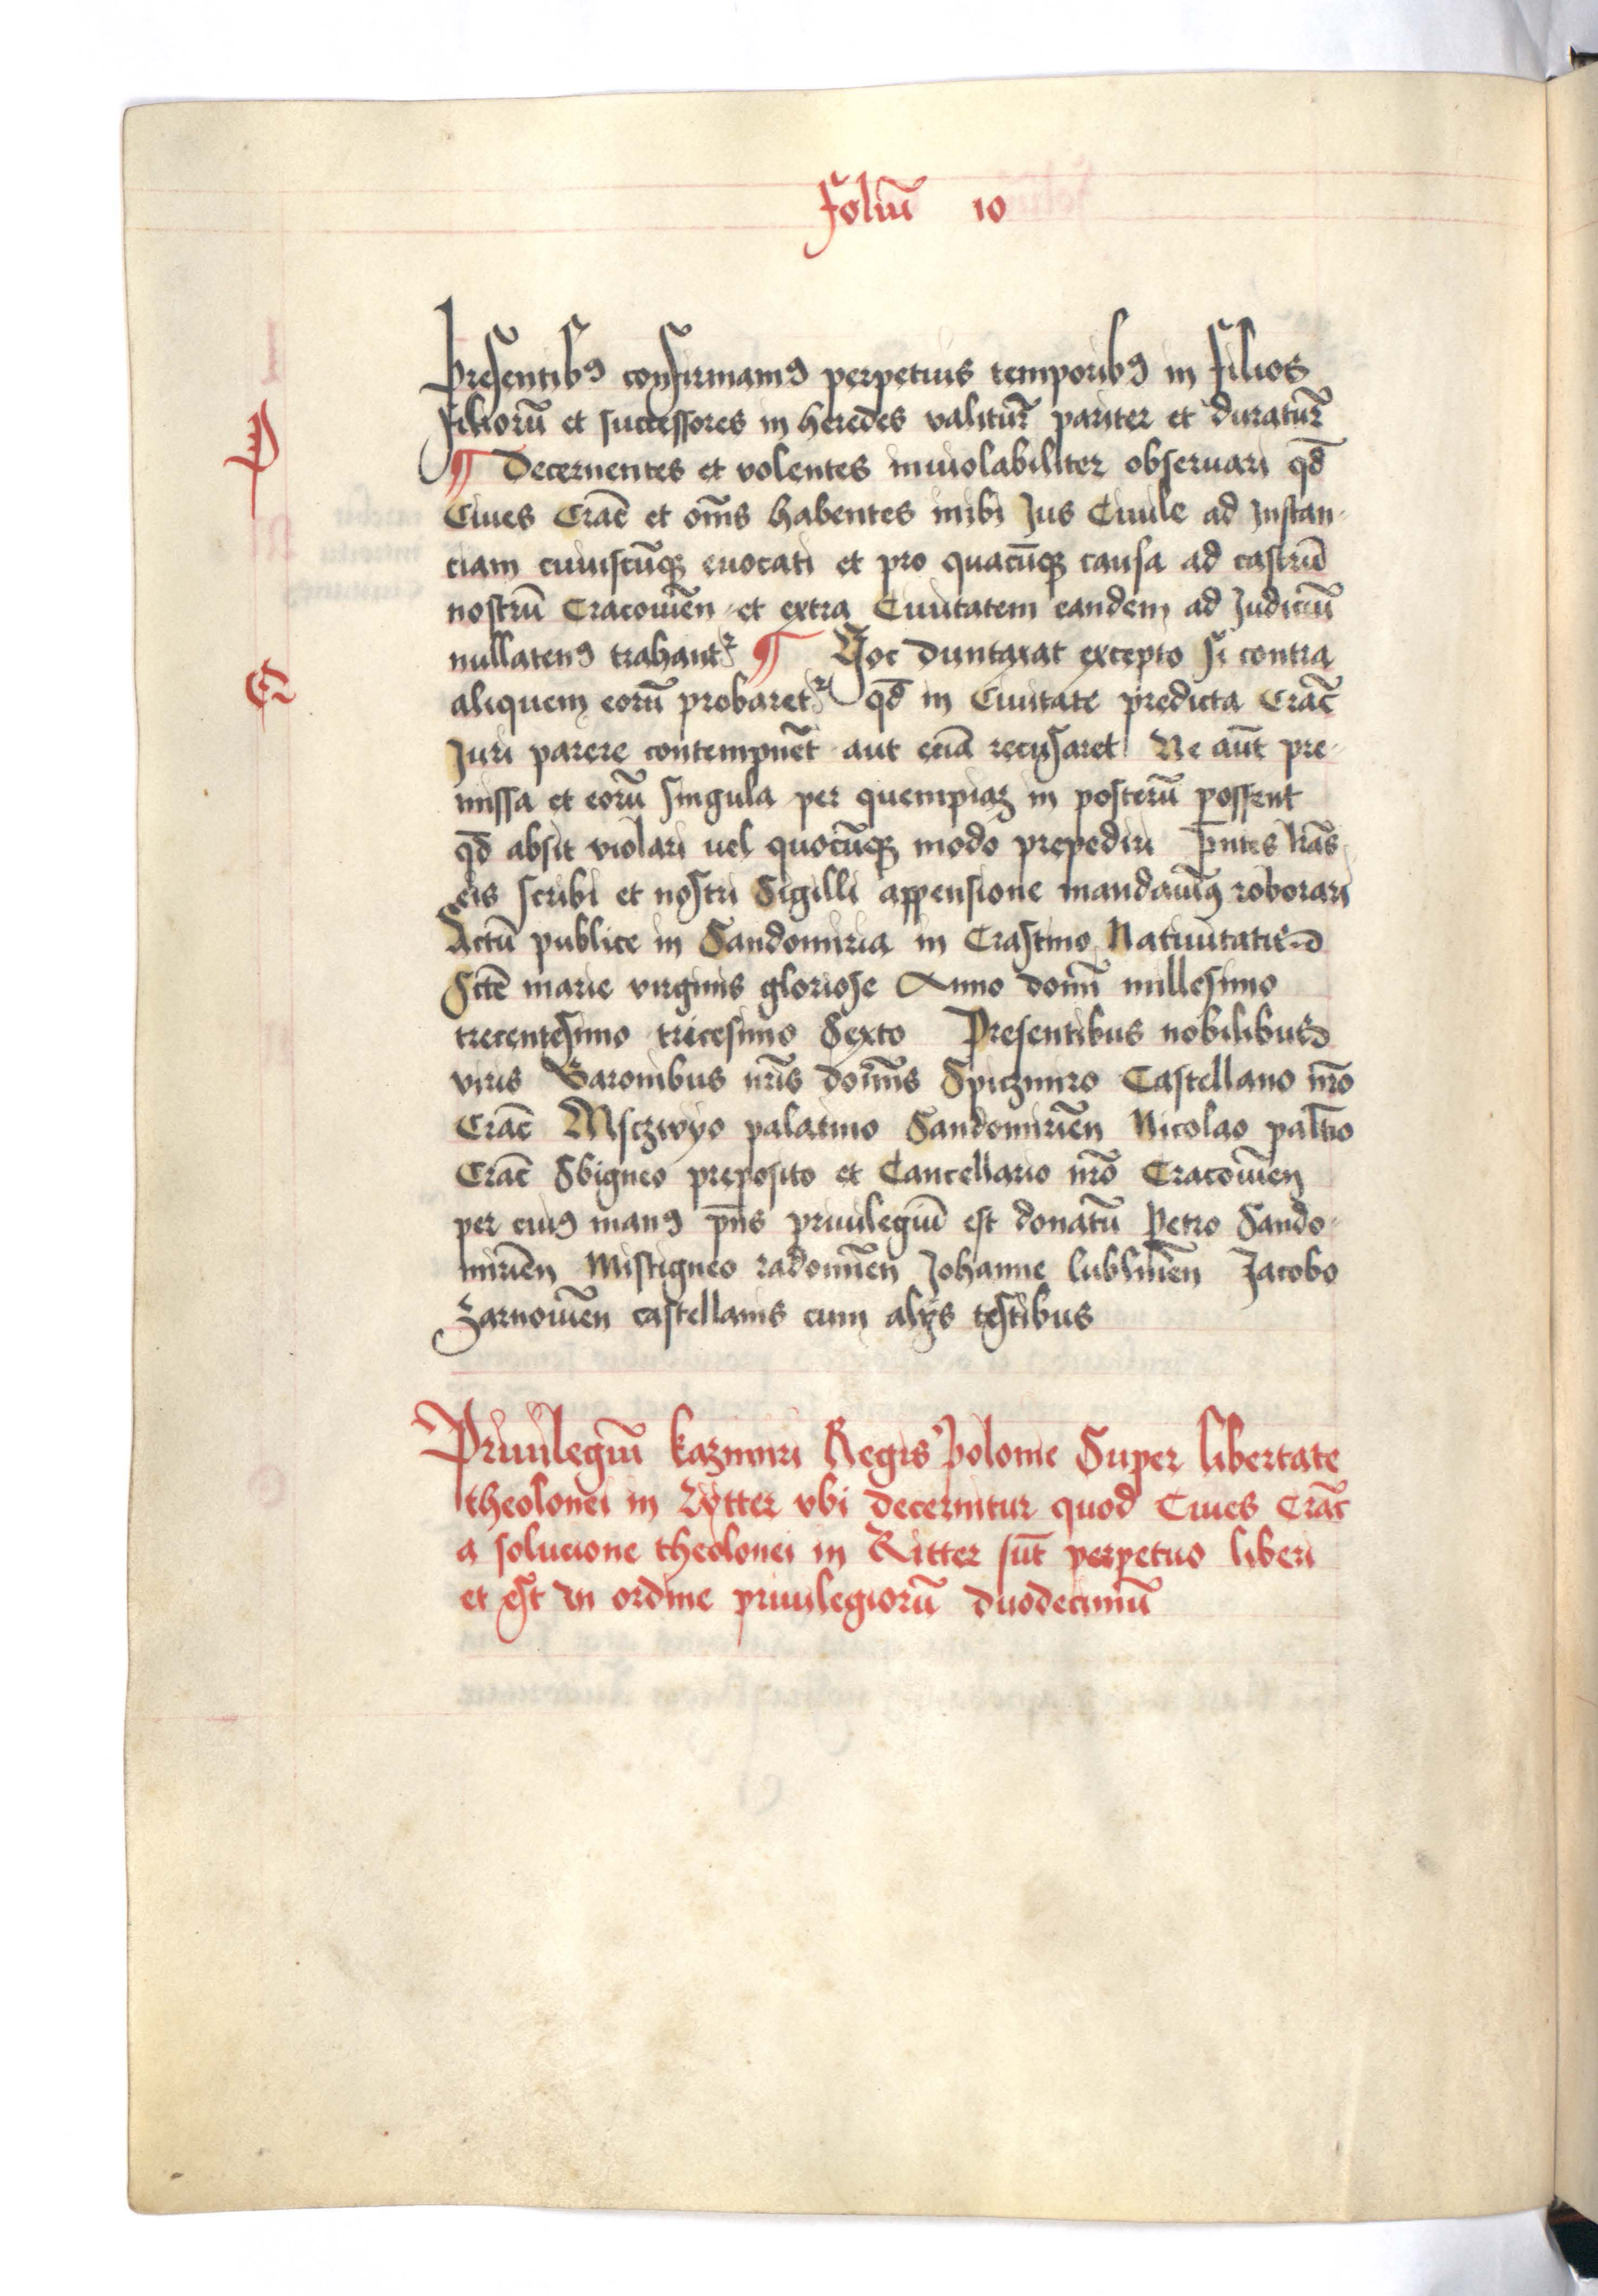 Foliū 10
Presentibꝰ confirmamꝰ perpetuis temporibꝰ in filios
filiorū et successores in heredes valitur̄ pariter et duratur̄
P
¶ Decernentes et volentes inuiolabiliter obseruari qd̄
Ciues Crac̄ et om̄s habentes inibi Jus Ciuile ad Instan-
ciam cuiuscūqꝫ euocati et pro quacūqꝫ causa ad castrū
nostrū Cracouien̄ et extra Ciuitatem eandem ad Judiciū
nullatenꝰ trahant᷑ ¶ Hoc duntaxat excepto si contra
C
aliquem eorū probaret᷑ qd̄ in Ciuitate predicta Crac̄
Juri parere contempnēt aut eciā recusaret Ne aūt pre-
missa et eorū singula per quempiaꝫ in posterū possent
qd̄ absit violari uel quocūqꝫ modo prepediri p̄ntes lr̄as
eis scribi et nostri Sigilli appensione mandauimꝰ roborari
Actū publice in Sandomiria in Crastino Natiuitatis
Sctē marie virginis gloriose Anno domī millesimo
trecentesimo tricesimo Sexto Presentibus nobilibus
viris Baronibus nr̄is domīs Spiczmiro Castellano nr̄o
Crac̄ Msczwyo palatino Sandomirien̄ Nicolao palt̄io
Crac̄ Sbigneo preposito et Cancellario nr̄o Cracouien̄
per cuiꝰ manꝰ p̄ns priuilegiū est donatū Petro Sando-
mirien̄ Mistigneo radomien̄ Johanne lublinen̄ Jacobo
Zarnouien̄ castellanis cum alijs testibus
Priuilegiū kazimiri Regis Polonie Super libertate
theolonei in Rytter vbi decernitur quod Ciues Crac̄
a solucione theolonei in Ritter sūt perpetuo liberi
et est in ordine priuilegiorū duodecimū